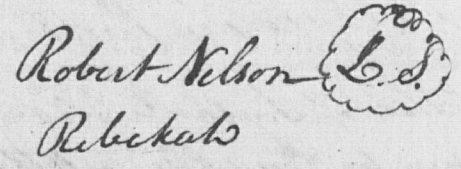 Robert Nelson L.S.
Rebekah